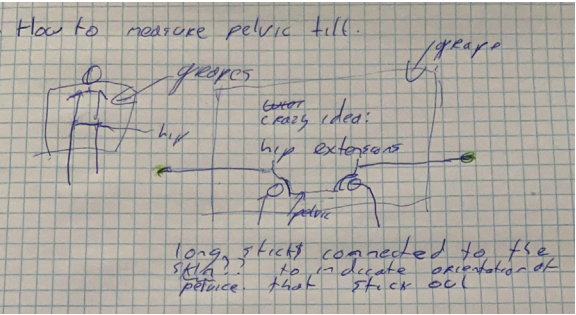 How to measure pelvic tilt.
grapes
hip
grape
crazy idea:
hip extensions
pelvic
long sticks connected to the
skin?? to indicate orientation of
pelvice. that stick out